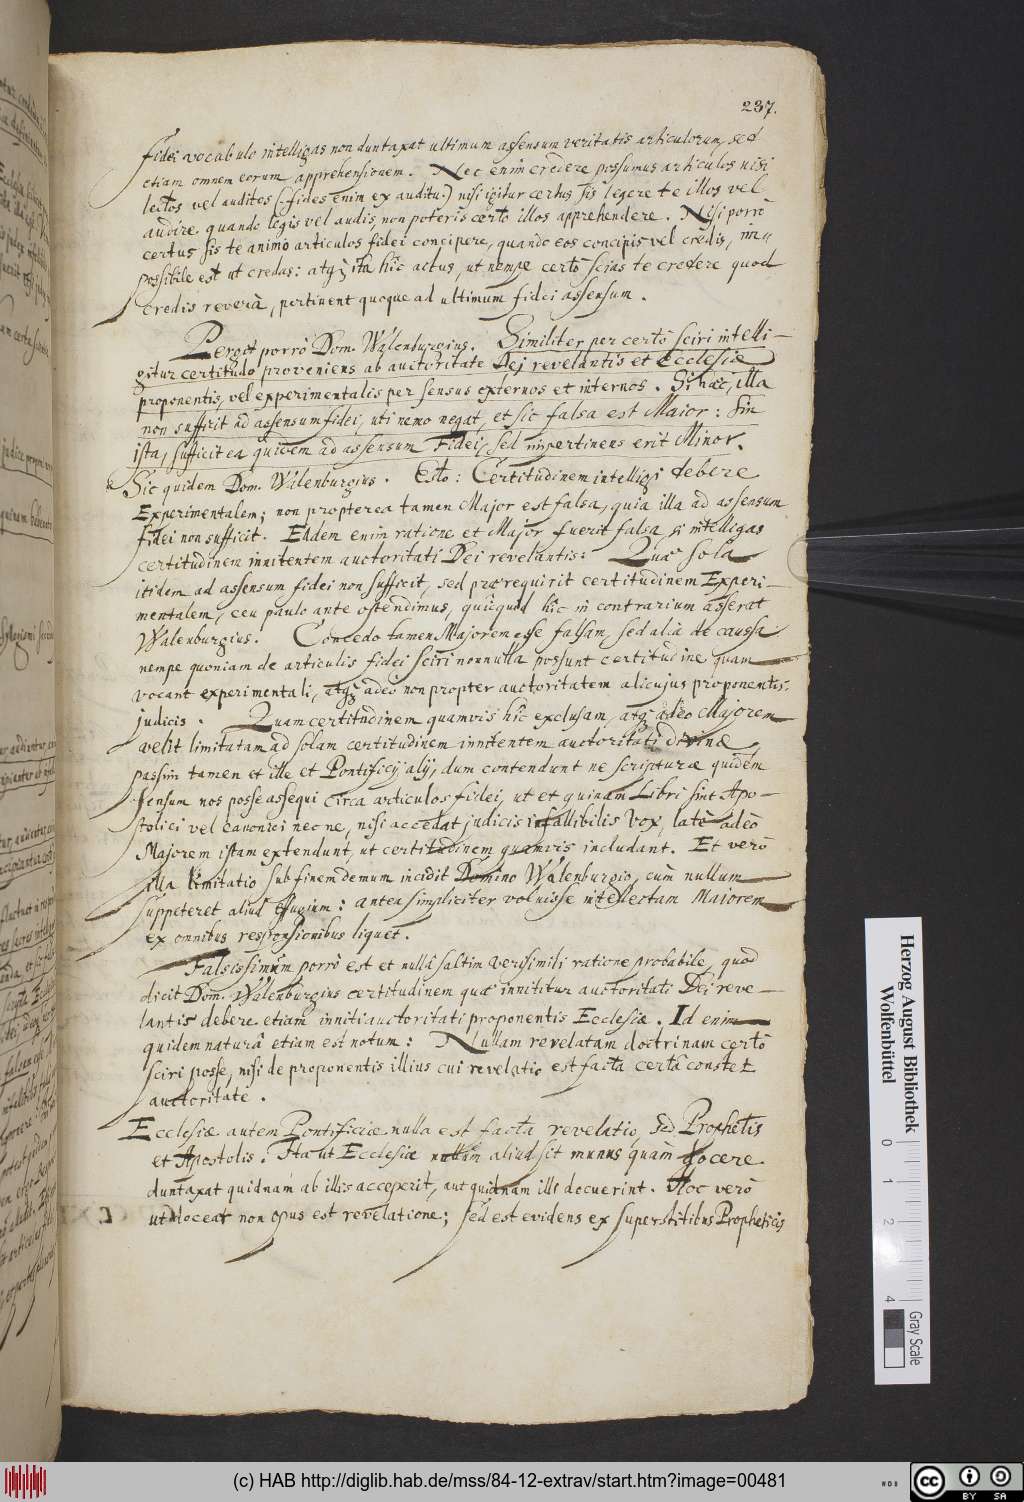 237.
fidei vocabulo intelligas non duntaxat ultimum assensum veritatis articulorum, sed
etiam omnem eorum apprehensionem. Nec enim credere possumus articulos nisi
lectos vel auditos (:fides enim ex auditu:) nisi igitur certus sis legere te illos vel
audire, quando legis vel audis, non poteris certò illos apprehendere. Nisi porrò
certus sis te animo articulos fidei concipere, quando eos concipis vel credis, im„
possibile est ut credas: atq; ita hîc actus, ut nempe certò scias te credere quod
credis reverà, pertinent quoque ad ultimum fidei assensum.
Pergit porrò Dom. Walenburgius. Similiter per certò sciri intelli–
gitur certitudo proveniens ab auctoritate Dei revelantis et Ecclesiæ
proponentis, vel experimentalis per sensus externos et internos. Si hæc, illa
non sufficit ad assensum fidei, uti nemo negat, et sic falsa est Maior: Sin
ista, sufficit ea quidem ad assensum Fidei, sed impertinens erit Minor.
Sic quidem Dom. Walenburgius. Esto: Certitudinem intelligi debere
Experimentalem; non propterea tamen Major est falsa, quia illa ad assensum
fidei non sufficit. Eadem enim ratione et Major fuerit falsa, si intelligas
certitudinem innitentem auctoritati Dei revelantis: Quæ sola
itidem ad assensum fidei non sufficit, sed prærequirit certitudinem Experi–
mentalem, ceu paulo ante ostendimus, quicquid hîc in contrarium asserat
Walenburgius. Concedo tamen Majorem esse falsam, sed aliâ de caussa
nempe quoniam de articulis fidei sciri nonnulla possunt certitudine quam
vocant experimentali, atq; adeo non propter auctoritatem alicujus proponentis,
judicis. Quam certitudinem quamvis hîc exclusam, atq; adeo Majorem
velit limitatam ad solam certitudinem innitentem auctoritati divinæ,
passim tamen et ille et Pontificij alij, dum contendunt ne scripturæ quidem
sensum nos posse assequi circa articulos fidei, ut et quinam Libri sint Apo–
stolici vel canonici necne, nisi accedat judicis infallibilis vox, latè adeò
Majorem istam extendunt, ut certitudinem quamvis includant. Et verò
illa limitatio sub finem demum incidit Domino Walenburgio, cùm nullum
suppeteret aliud effugium: antea simpliciter voluisse intellectam Maiorem
ex omnibus responsionibus liquet.
Falsissimum porrò est et nullâ saltim verisimili ratione probabile, quod
dicit Dom. Walenburgius certitudinem quæ innititur auctoritati Dei reve–
lantis debere etiam inniti auctoritati proponentis Ecclesiæ. Id enim
quidem naturâ etiam est notum: Nullam revelatam doctrinam certò
sciri posse, nisi de proponentis illius cui revelatio est facta certâ constet
auctoritate.
Ecclesiæ autem Pontificiæ nulla est facta revelatio, sed Prophetis
et Apostolis. Ita ut Ecclesiæ nullum aliud sit munus quàm docere
duntaxat quidnam ab illis acceperit, aut quidnam illi docuerint. Hoc verò
ut doceat non opus est revelatione; sed est evidens ex superstitibus Propheticis
Herzog August Bibliothek
Wolfenbüttel
0 1 2 4
Gray Scale
(c) HAB http://diglib.hab.de/mss/84-12-extrav/start.htm?image=00481
cc BY SA